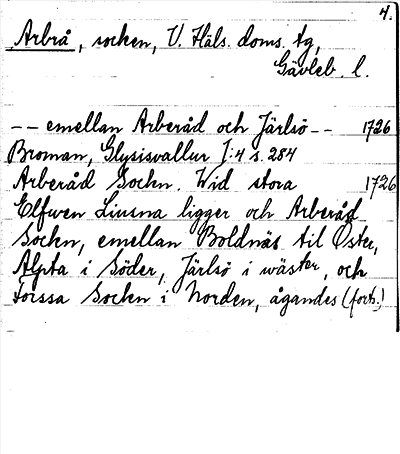 4.
Arbrå, socken, V. Häls. doms. tg,
Gävleb. l.
-- emellan Arberåd och Järlsö -- 1726
Broman, Glysisvallur I:4 s. 284
Arberåd Sockn. Wid stora 1726
Elfwen Liusna ligger och Arberåd
Sockn, emellan Boldnäs til Öster,
Alfta i Söder, Järlsö i wäster, och
Forssa Sockn i Norden, ågandes (forts.)